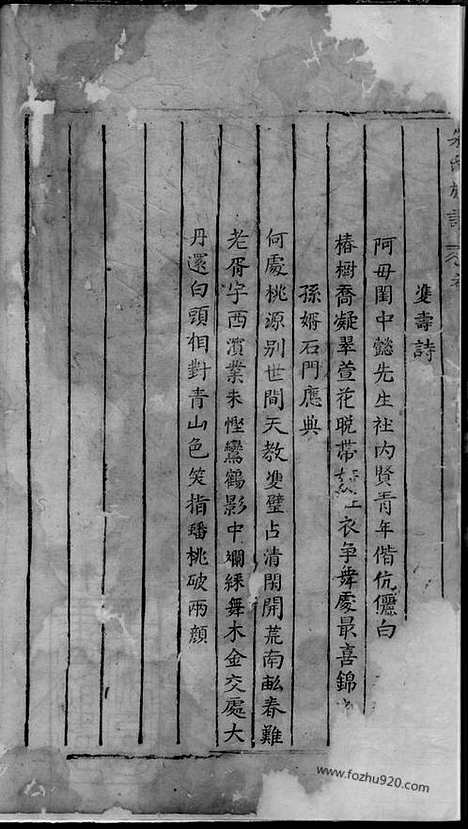 雙壽詩
阿母閨中懿先生社内賢青年偕伉儷白
椿樹喬凝翠萱花晩帶衣争舞處最喜錦
孫婿石門應典
何處桃源别世間天教雙璧占清閑開荒南畝春難
老胥宇西濱業未慳鸞鶴影中斕綵舞木金交處大
丹還白頭相對青山色笑指蟠桃破兩顔
www.fozhu920.com